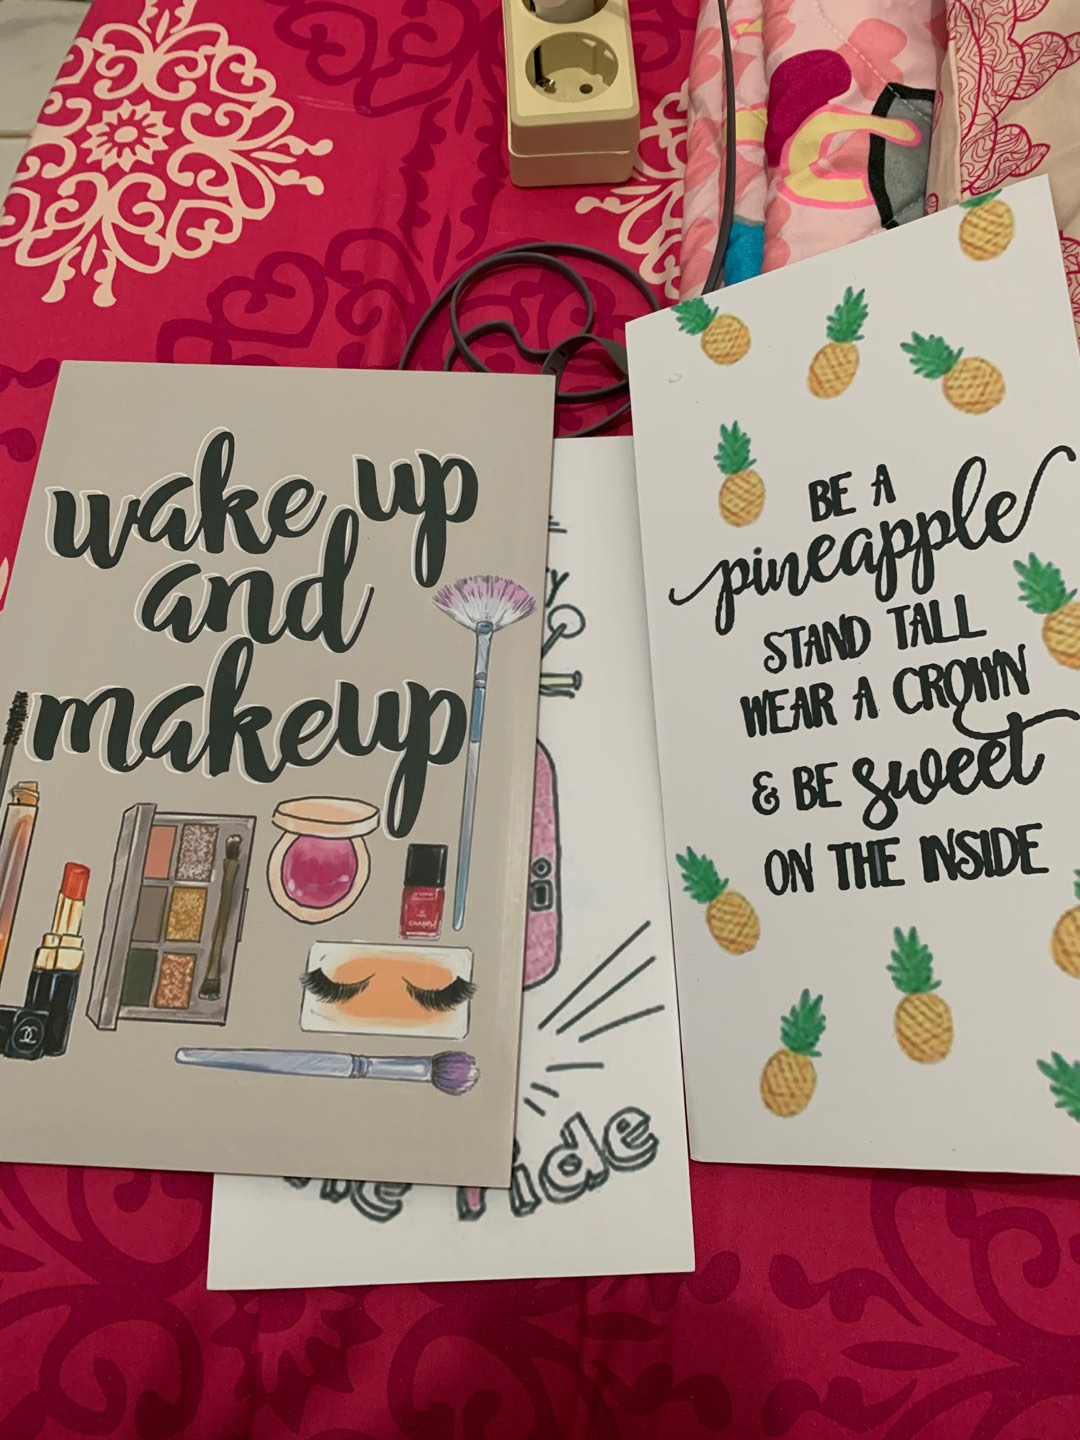 wake up
and
makeup
CHANEL
BE A
pineapple
STAND TALL
WEAR A CROWN
& BE sweet
ON THE INSIDE
Ride